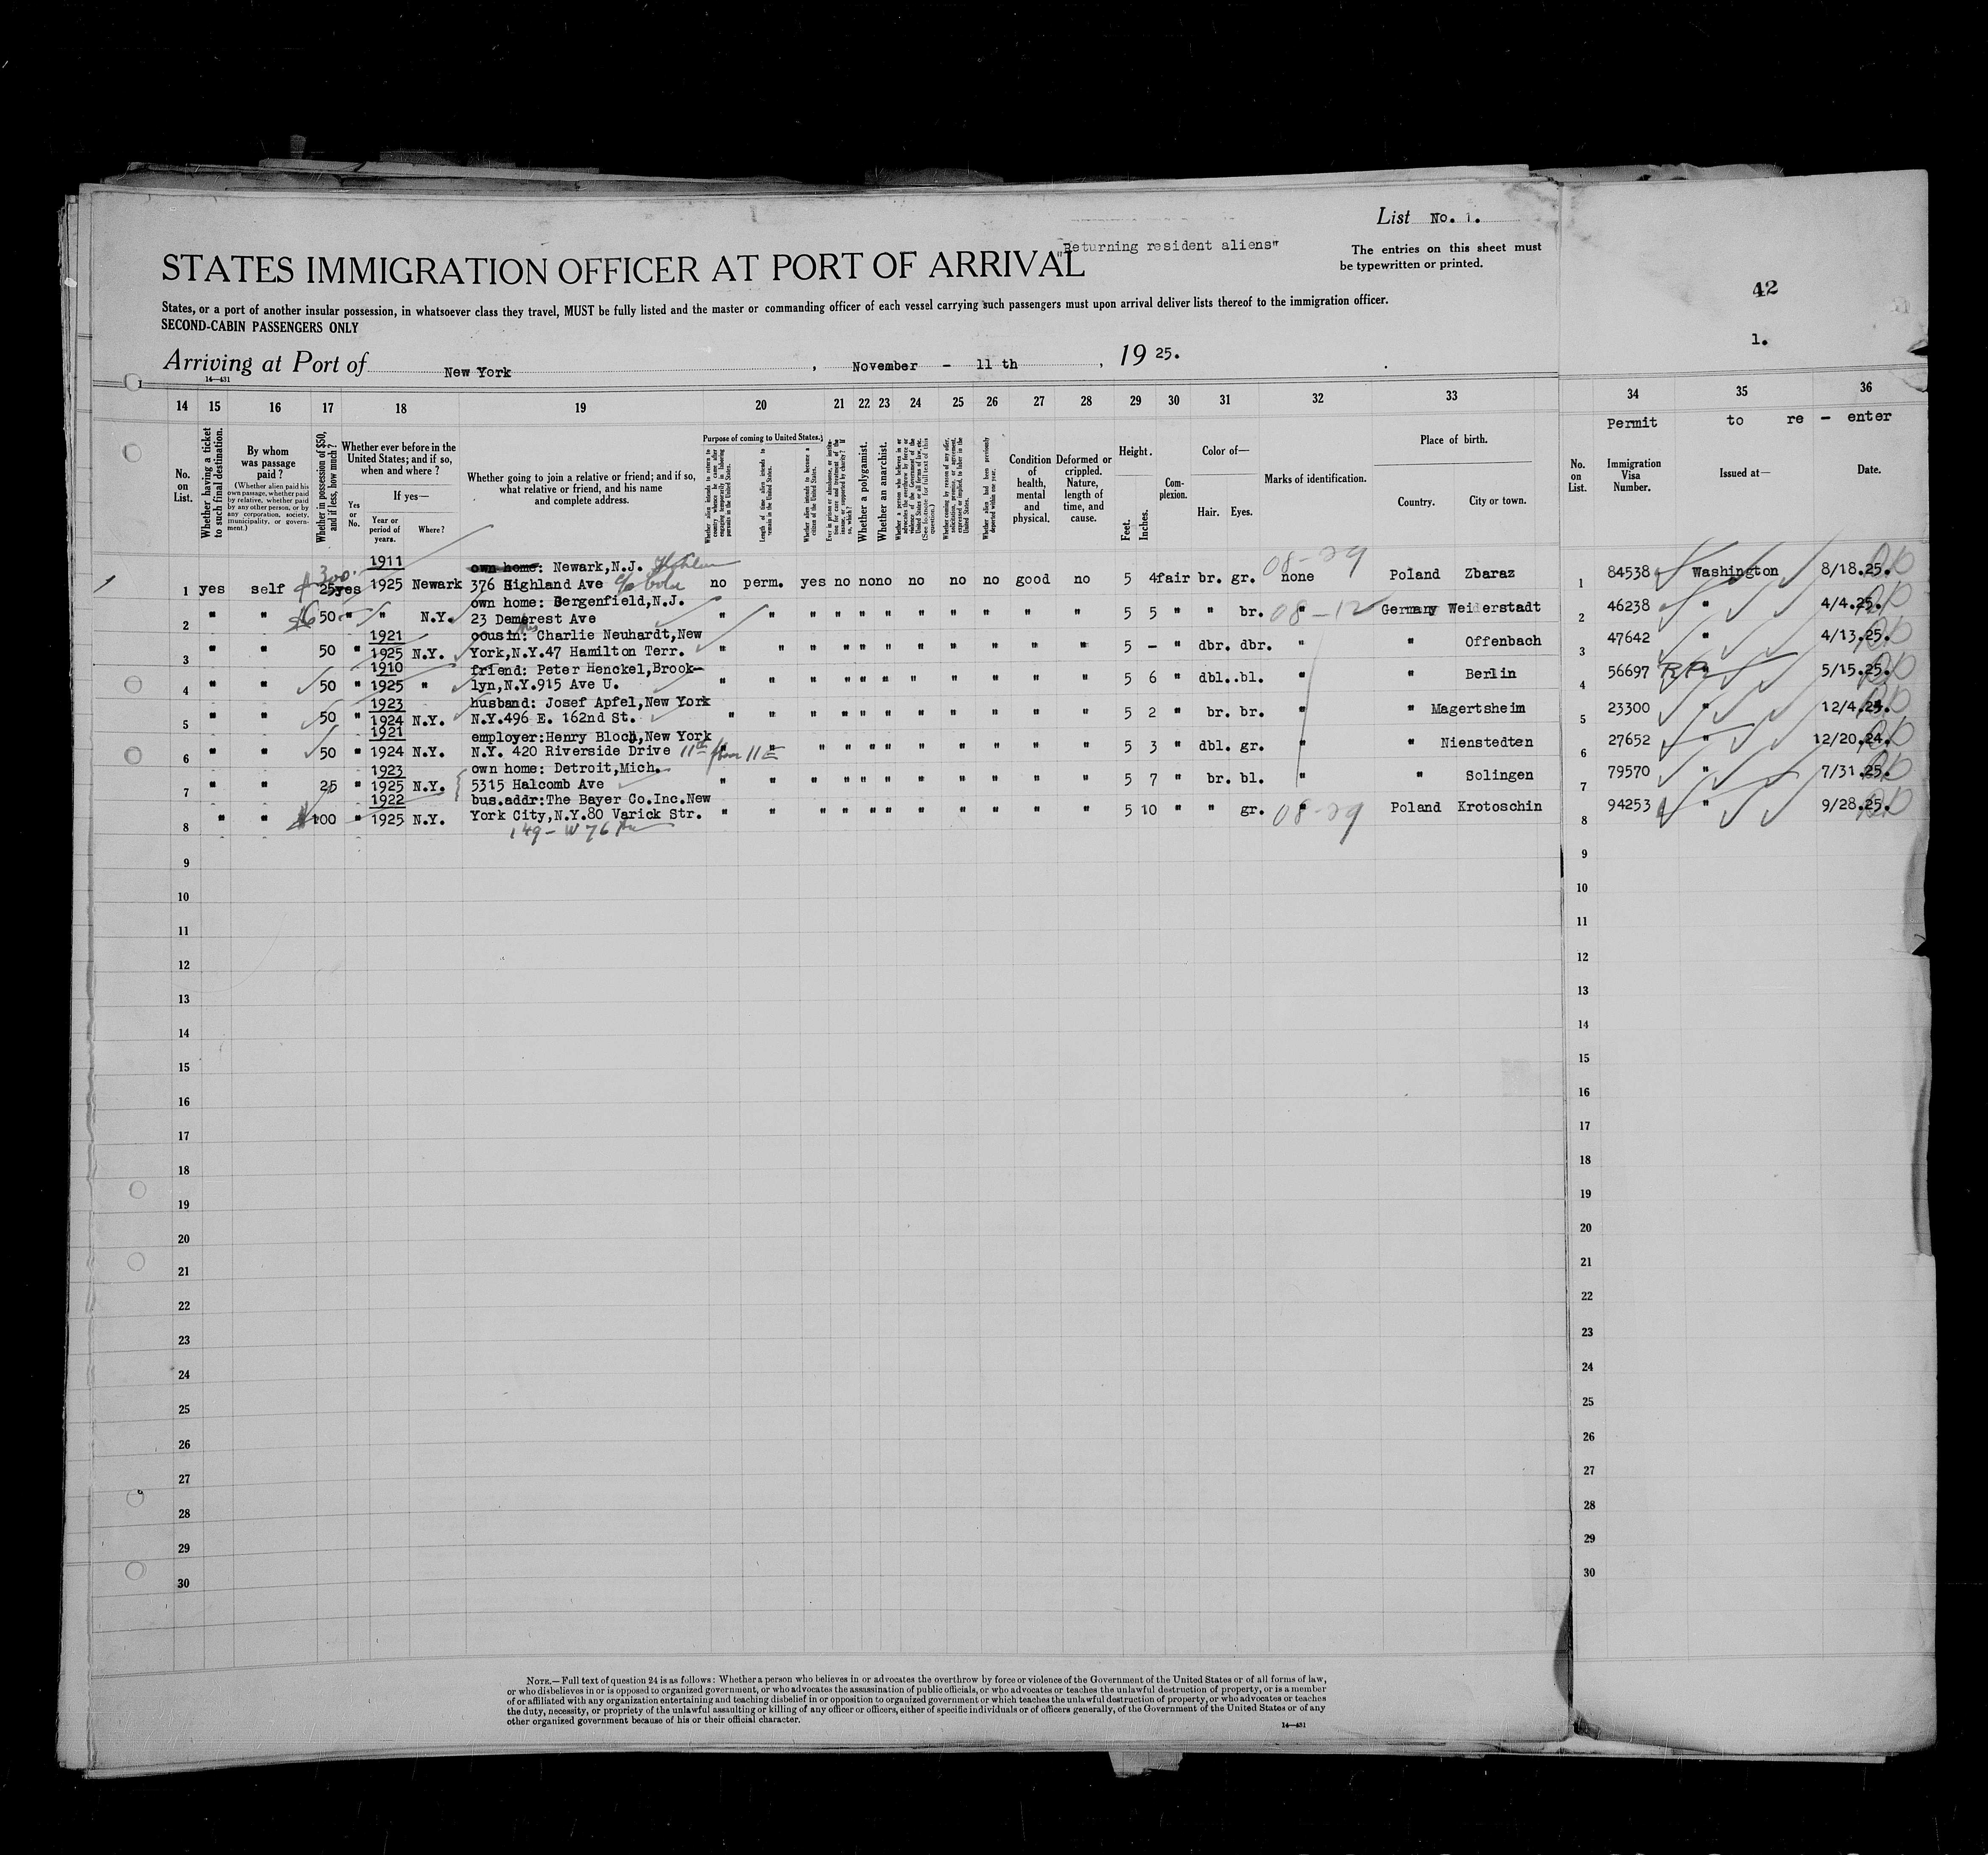 List No. 1.
"Returning resident aliens"
The entries on this sheet must
be typewritten or printed.
STATES IMMIGRATION OFFICER AT PORT OF ARRIVAL
42
States, or a port of another insular possession, in whatsoever class they travel, MUST be fully listed and the master or commanding officer of each vessel carrying such passengers must upon arrival deliver lists thereof to the immigration officer.
SECOND-CABIN PASSENGERS ONLY
1.
Arriving at Port of New York, November - 11 th, 19 25.
14—431
14 15 16 17 18 19 20 21 22 23 24 25 26 27 28 29 30 31 32 33 34 35 36
Permit to re - enter
No. on List.
Whether having a ticket to such final destination.
By whom was passage paid?
(Whether alien paid his own passage, whether paid by relative, whether paid by any other person, or by any corporation, society, municipality, or government.)
Whether in possession of $50, and if less, how much?
Whether ever before in the United States; and if so, when and where?
Yes or No.
If yes—
Year or period of years.
Where?
Whether going to join a relative or friend; and if so, what relative or friend, and his name and complete address.
Purpose of coming to United States.
Whether alien intends to return to country whence he came after engaging temporarily in laboring pursuits in the United States.
Length of time alien intends to remain in the United States.
Whether alien intends to become a citizen of the United States.
Whether a polygamist.
Whether an anarchist.
Condition of health, mental and physical.
Deformed or crippled. Nature, length of time, and cause.
Height.
Feet. Inches.
Complexion.
Color of—
Hair. Eyes.
Marks of identification.
Place of birth.
Country. City or town.
No. on List.
Immigration Visa Number.
Issued at—
Date.
1 yes self 300 25 yes 1911 1925 Newark own home: Newark,N.J. 376 Highland Ave no perm. yes no no no no no no good no 5 4 fair br. gr. none 08-29 Poland Zbaraz 1 84538 Washington 8/18.25.
2 " " 50 " " N.Y. own home: Bergenfield,N.J. 23 Demerest Ave " " " " " " " " " " " 5 5 " " br. 08-12 Germany Weiderstadt 2 46238 " 4/4.25.
3 " " 50 " 1921 1925 N.Y. cousin: Charlie Neuhardt,New York,N.Y.47 Hamilton Terr. " " " " " " " " " " " 5 - " dbr. dbr. " " Offenbach 3 47642 " 4/13.25.
4 " " 50 " 1910 1925 " friend: Peter Henckel,Brooklyn,N.Y.915 Ave U. " " " " " " " " " " " 5 6 " dbl..bl. " " Berlin 4 56697 " 5/15.25.
5 " " 50 " 1923 1924 N.Y. husband: Josef Apfel,New York N.Y.496 E. 162nd St. " " " " " " " " " " " 5 2 " br. br. " " Magertsheim 5 23300 " 12/4.24.
6 " " 50 " 1921 1924 N.Y. employer:Henry Bloch,New York N.Y. 420 Riverside Drive 11th floor 11E " " " " " " " " " " 5 3 " dbl. gr. " " Nienstedten 6 27652 " 12/20.24.
7 " " 25 " 1923 1925 N.Y. own home: Detroit,Mich. 5315 Halcomb Ave " " " " " " " " " " " 5 7 " br. bl. " " Solingen 7 79570 " 7/31.25.
8 " " 100 " 1922 1925 N.Y. bus.addr:The Bayer Co.Inc.New York City,N.Y.80 Varick Str. " " " " " " " " " " " 5 10 " " gr. " 08-29 Poland Krotoschin 8 94253 " 9/28.25.
149-W 76
9 9
10 10
11 11
12 12
13 13
14 14
15 15
16 16
17 17
18 18
19 19
20 20
21 21
22 22
23 23
24 24
25 25
26 26
27 27
28 28
29 29
30 30
NOTE.—Full text of question 24 is as follows: Whether a person who believes in or advocates the overthrow by force or violence of the Government of the United States or of all forms of law,
or who disbelieves in or is opposed to organized government, or who advocates the assassination of public officials, or who advocates or teaches the unlawful destruction of property, or is a member
of or affiliated with any organization entertaining and teaching disbelief in or opposition to organized government or which teaches the unlawful destruction of property, or who advocates or teaches
the duty, necessity, or propriety of the unlawful assaulting or killing of any officer or officers, either of specific individuals or of officers generally, of the Government of the United States or of any
other organized government because of his or their official character.
14—431